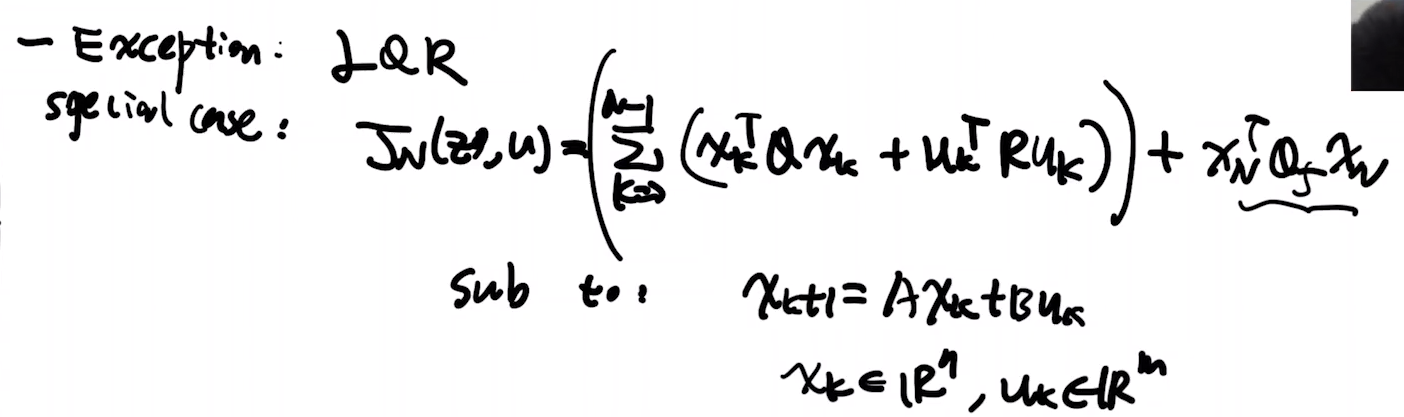 — Exception: LQR
special case: J_N(z, u) = ( ∑_{k=0}^{N-1} (x_k^T Q x_k + u_k^T R u_k) ) + x_N^T Q_f x_N
sub to: x_{k+1} = A x_k + B u_k
x_k ∈ ℝ^n, u_k ∈ ℝ^m